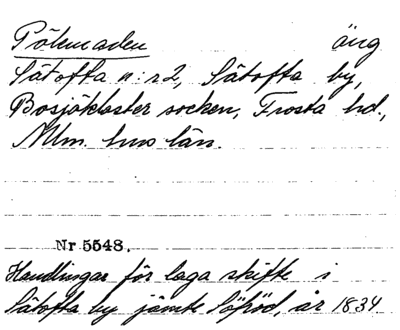 Pölemaden äng
Sätofta n:r 2, Sätofta by,
Bosjökloster socken, Frosta hd.,
Mlm. hus län.
Nr 5548.
Handlingar för laga skifte i
Sätofta by jämte Sjöröd, år 1834.